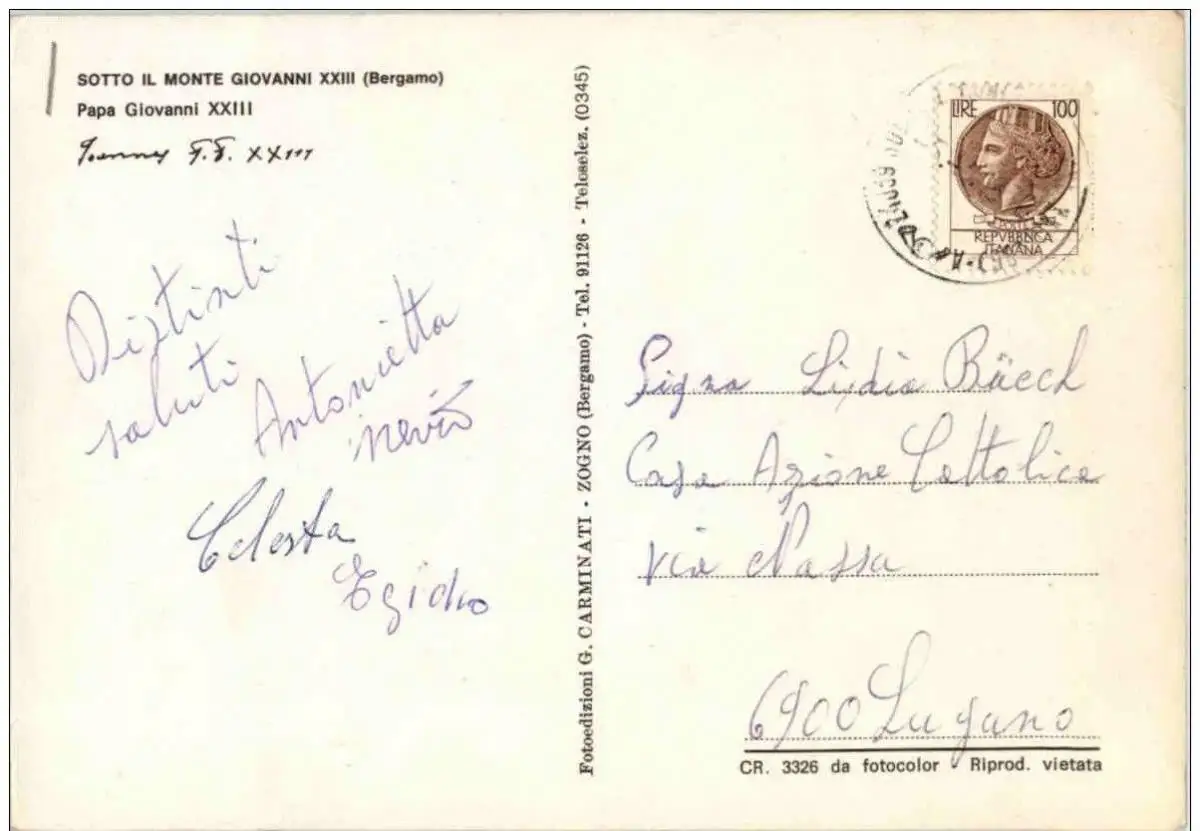 SOTTO IL MONTE GIOVANNI XXIII (Bergamo)
Papa Giovanni XXIII
XXIII
Distinti
saluti
Antonietta
Nevio
Celesta
Egidio
Fotoedizioni G. CARMINATI - ZOGNO (Bergamo) - Tel. 91126 - Teleselez. (0345)
LIRE 100
REPVBBLICA
ITALIANA
Signa Lidia Bäech
Casa Azione Cattolica
via Nassa
6900 Lugano
CR. 3326 da fotocolor - Riprod. vietata